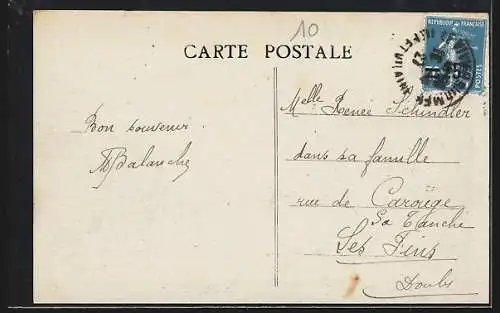 10
CARTE POSTALE
REPUBLIQUE FRANÇAISE
POSTES
Melle Renée Schindler
dans sa famille
rue de Carouge
Bon souvenir
Balanche
La Tanche
Les Fins
Doubs